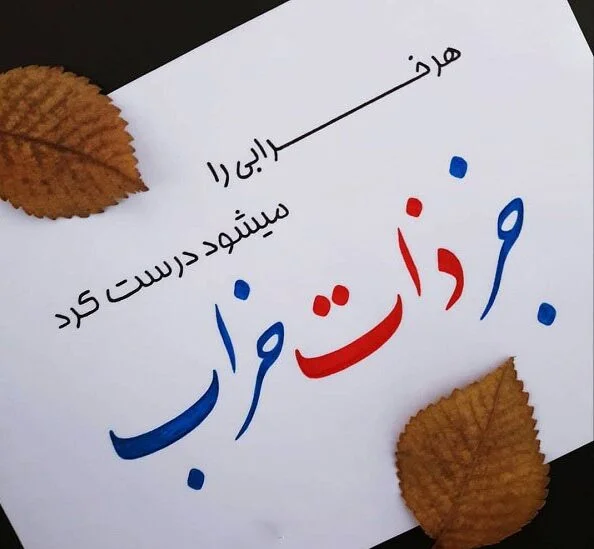 هر خرابی را
میشود درست کرد
جز ذات خراب